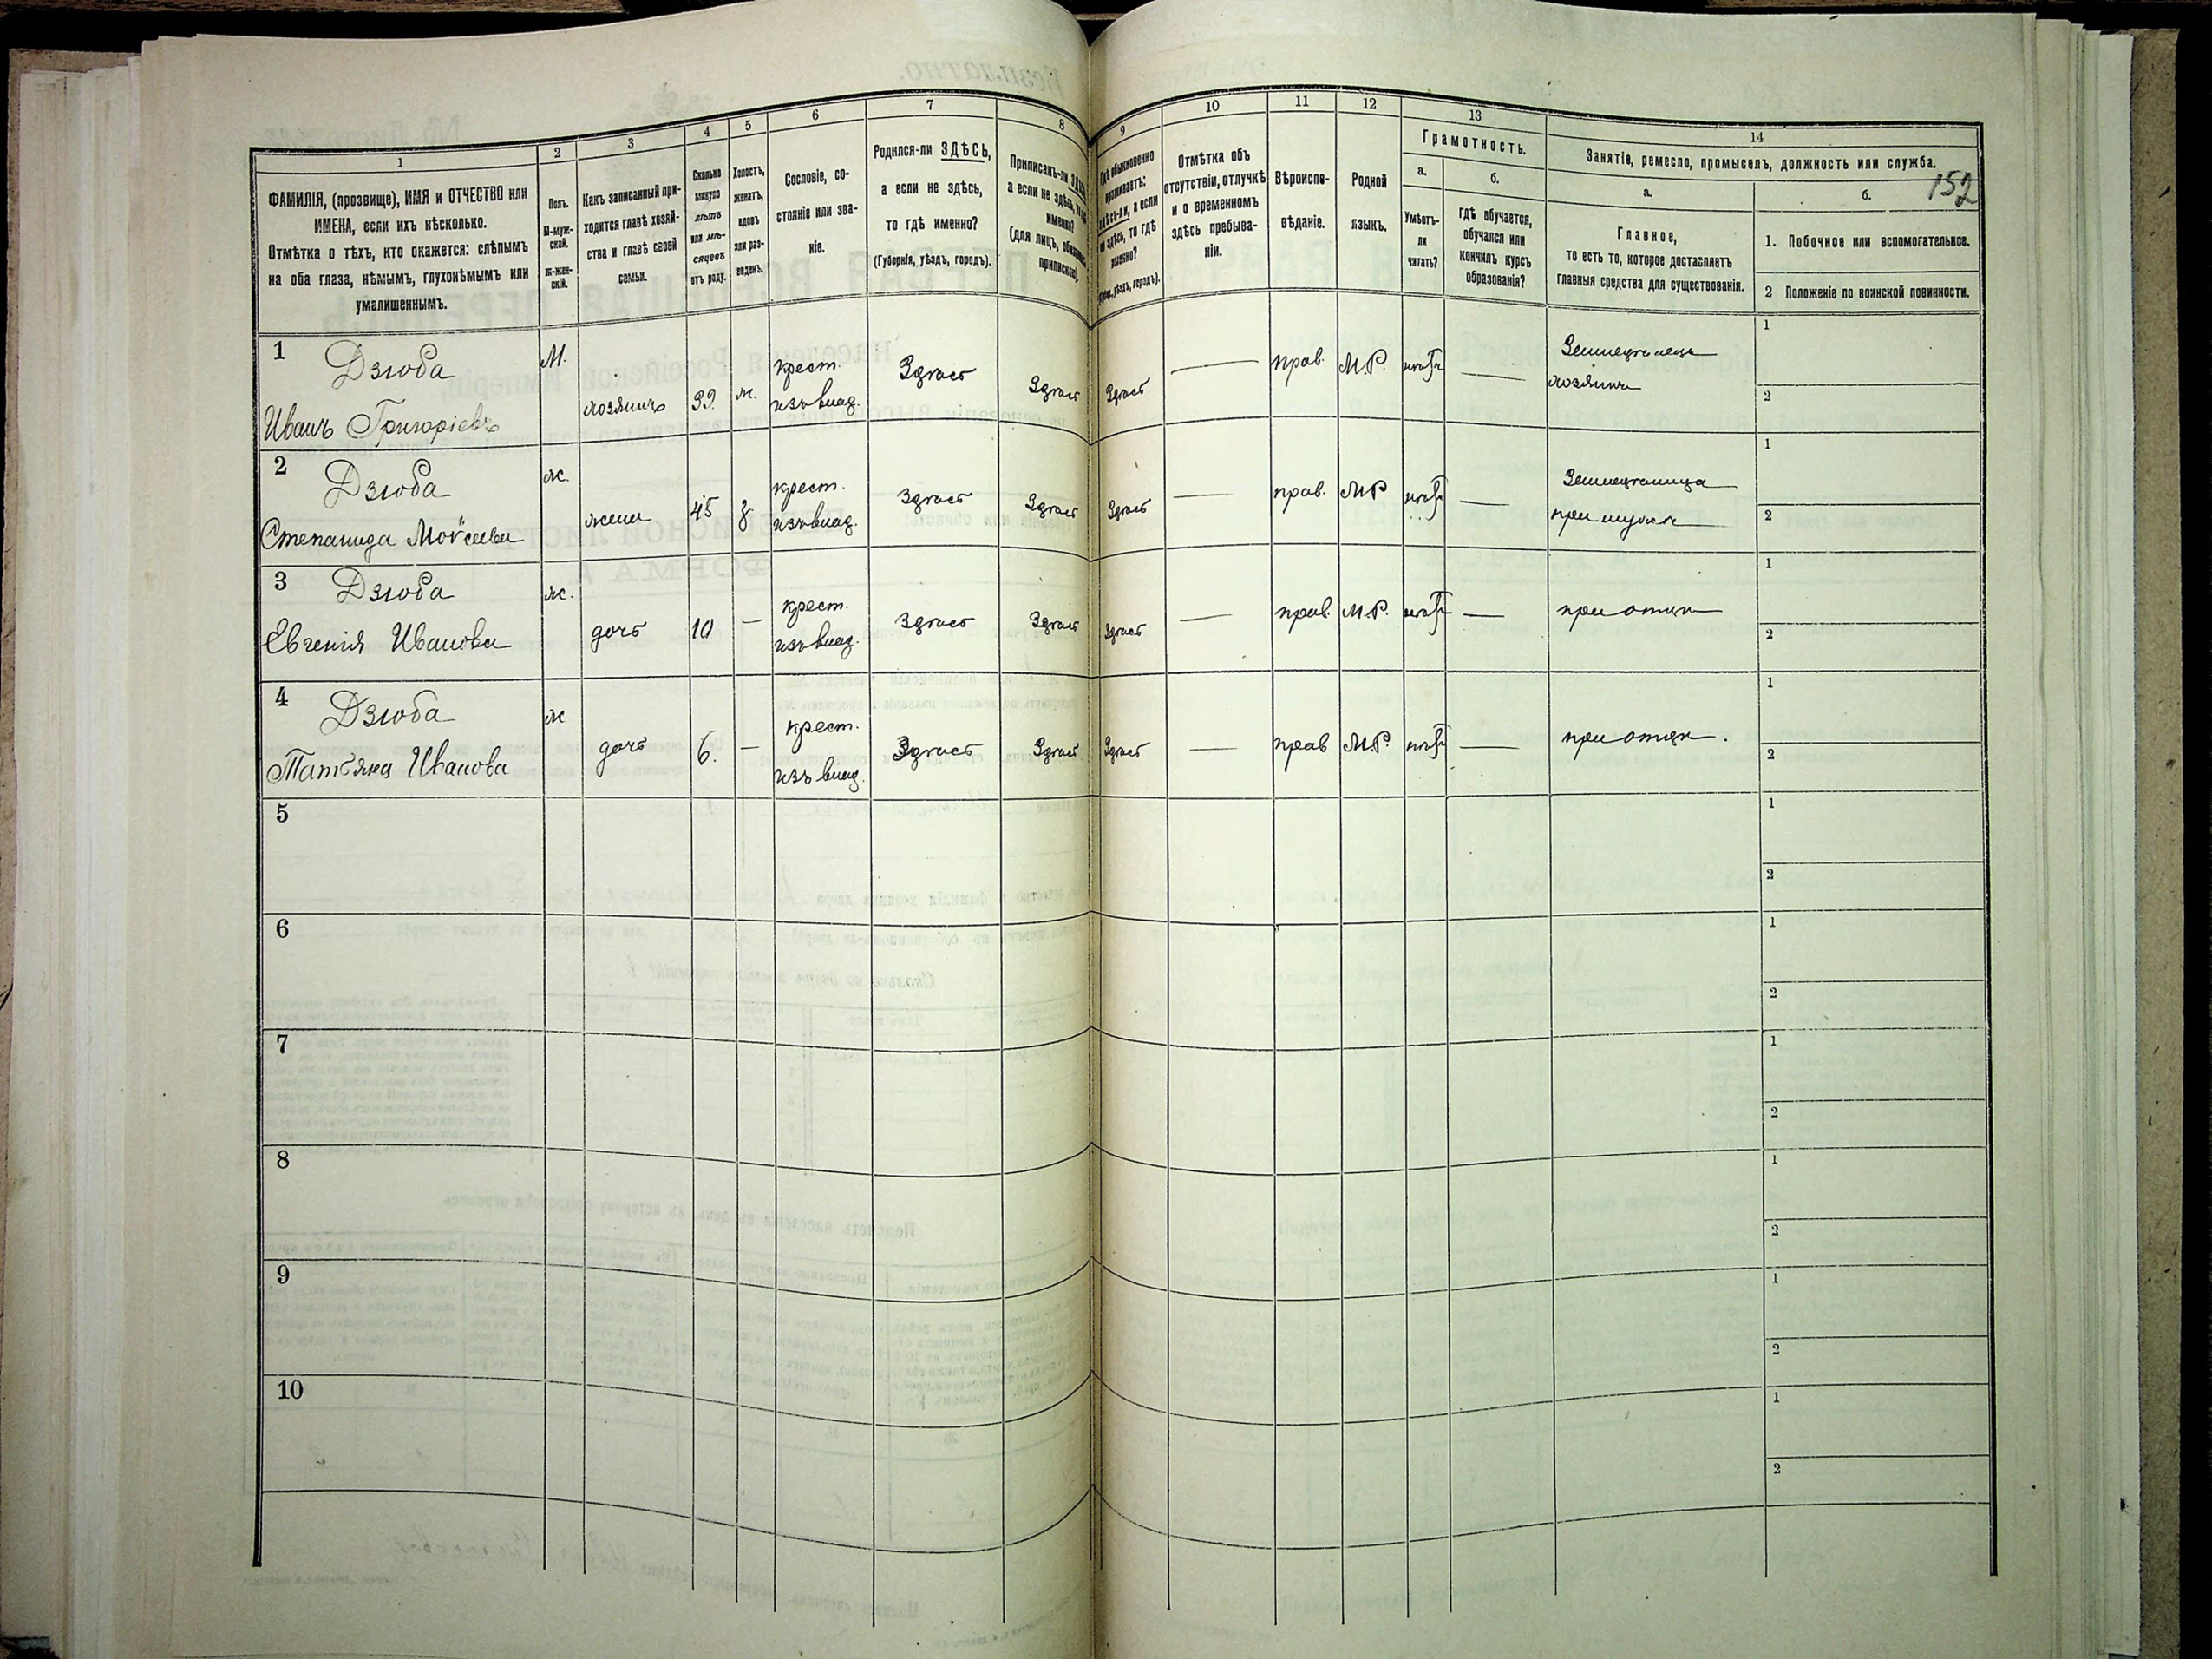 1
2
3
4
5
6
7
8
9
10
11
12
13
14
ФАМИЛІЯ, (прозвище), ИМЯ и ОТЧЕСТВО или
ИМЕНА, если ихъ нѣсколько.
Отмѣтка о тѣхъ, кто окажется: слѣпымъ
на оба глаза, нѣмымъ, глухонѣмымъ или
умалишеннымъ.
Полъ.
М-муж-
ской.
Ж-жен-
скій.
Какъ записанный при-
ходится главѣ хозяй-
ства и главѣ своей
семьи.
Сколько
минуло
лѣтъ
или мѣ-
сяцевъ
отъ роду.
Холостъ,
женатъ,
вдовъ
или раз-
веденъ.
Сословіе, со-
стояніе или зва-
ніе.
Родился-ли ЗДѢСЬ,
а если не здѣсь,
то гдѣ именно?
(Губернія, уѣздъ, городъ).
Приписанъ-ли
а если не здѣсь,
именно?
(для лицъ,
Гдѣ обыкновенно
проживаетъ:
а если
не здѣсь, то гдѣ
именно?
уѣздъ, городъ).
Отмѣтка объ
отсутствіи, отлучкѣ
и о временномъ
здѣсь пребыва-
ніи.
Вѣроиспо-
вѣданіе.
Родной
языкъ.
Грамотность.
а.
б.
Умѣетъ-
ли
читать?
гдѣ обучается,
обучался или
кончилъ курсъ
образованія?
Занятіе, ремесло, промыселъ, должность или служба.
152
а.
б.
Главное,
то есть то, которое доставляетъ
главныя средства для существованія.
1. Побочное или вспомогательное.
2 Положеніе по воинской повинности.
1 Дзюба М. крест. Здѣсь прав. М.Р. Земледѣлецъ 1
Иванъ Григоріевъ хозяинъ 39. ж. изъ влад. Здѣсь Здѣсь нѣтъ хозяинъ 2
2 Дзюба ж. крест. Здѣсь прав. М.Р. Земледѣлица 1
Степанида Моисеева жена 45 з изъ влад. Здѣсь Здѣсь нѣтъ при мужѣ 2
3 Дзюба ж. крест. Здѣсь прав. М.Р. при отцѣ 1
Евгенія Иванова дочь 10 — изъ влад. Здѣсь Здѣсь нѣтъ 2
4 Дзюба ж крест. Здѣсь прав М.Р. при отцѣ. 1
Татьяна Иванова дочь 6. — изъ влад. Здѣсь Здѣсь нѣтъ 2
5 1
2
6 1
2
7 1
2
8 1
2
9 1
2
10 1
2